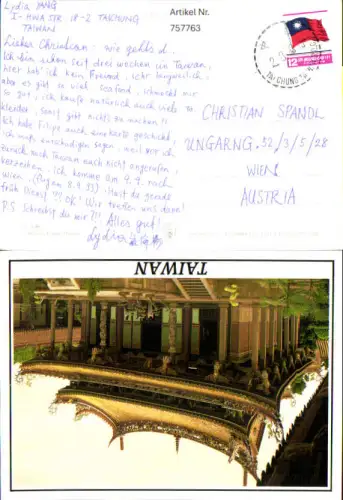 Lydia, YANG
I-HWA STR 18-2 TAICHUNG
TAIWAN
Artikel Nr.
757763
Lieber Christian: wie geht's d.
Ich bin schon seit drei wochen in Taiwan.
hier hab' ich kein Freund, echt langweilig,
aber es gibt so viel Seafood, schmeckt mir
so gut, ich kaufe natürlich auch viele
kleider, sonst gibt nichts zu machen!!
Ich habe Filipp auch eine karte geschickt,
ich muß entschuldigen sagen, weil vor ich
zurück nach Taiwan auch nicht angerufen,
verzeihen. Ich komme am 9.9. nach
wien. (Flug am 8.9.) Hast du gerade
früh Dienst?!! OK! Wir treffen uns dann!
P.S. Schreibst du mir?!! Alles gut!
Lydia
CHRISTIAN SPANDL
UNGARNG. 32/3/5/28
WIEN
AUSTRIA
12
TAICHUNG
TAIWAN